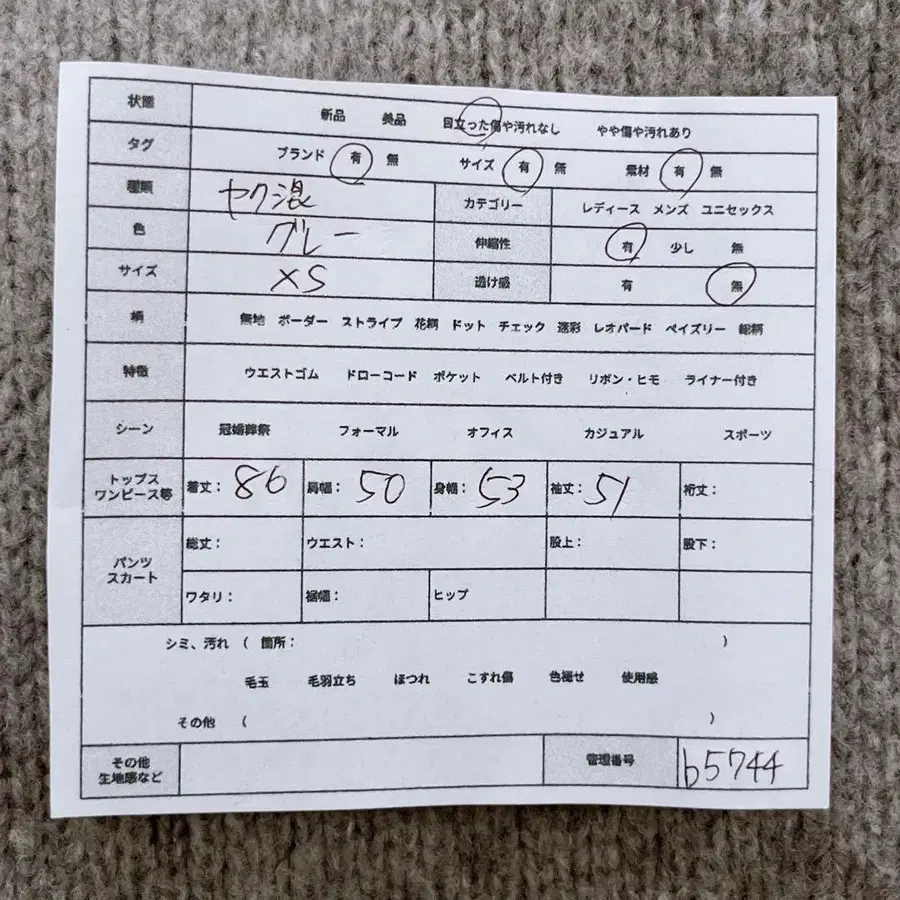 状態 新品 美品 目立った傷や汚れなし やや傷や汚れあり
タグ ブランド 有 無 サイズ 有 無 素材 有 無
種類 ヤク混 カテゴリー レディース メンズ ユニセックス
色 グレー 伸縮性 有 少し 無
サイズ XS 透け感 有 無
柄 無地 ボーダー ストライプ 花柄 ドット チェック 迷彩 レオパード ペイズリー 総柄
特徴 ウエストゴム ドローコード ポケット ベルト付き リボン・ヒモ ライナー付き
シーン 冠婚葬祭 フォーマル オフィス カジュアル スポーツ
トップス
ワンピース等 着丈：86 肩幅：50 身幅：53 袖丈：51 裄丈：
パンツ
スカート 総丈： ウエスト： 股上： 股下：
ワタリ： 裾幅： ヒップ
シミ、汚れ （ 箇所： ）
毛玉 毛羽立ち ほつれ こすれ傷 色褪せ 使用感
その他 （ ）
その他
生地感など 管理番号 b5744